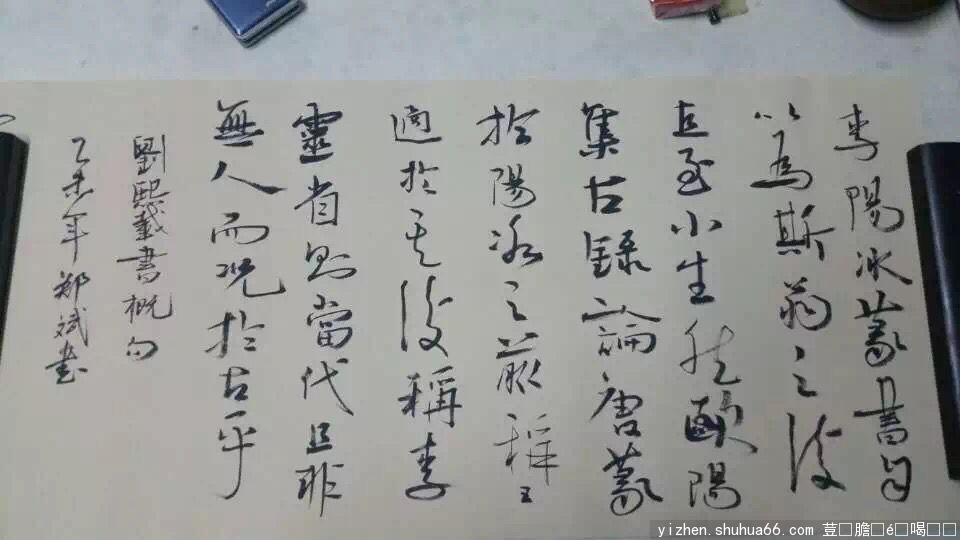 李陽冰篆書自
以為斯翁之後
直至小生然歐陽
集古錄論唐篆
於陽冰之前稱王
適於其後稱李
靈省則當代且非
無人而況於古乎
劉熙載書概句
乙未年鄭斌書
yizhen.shuhua66.com